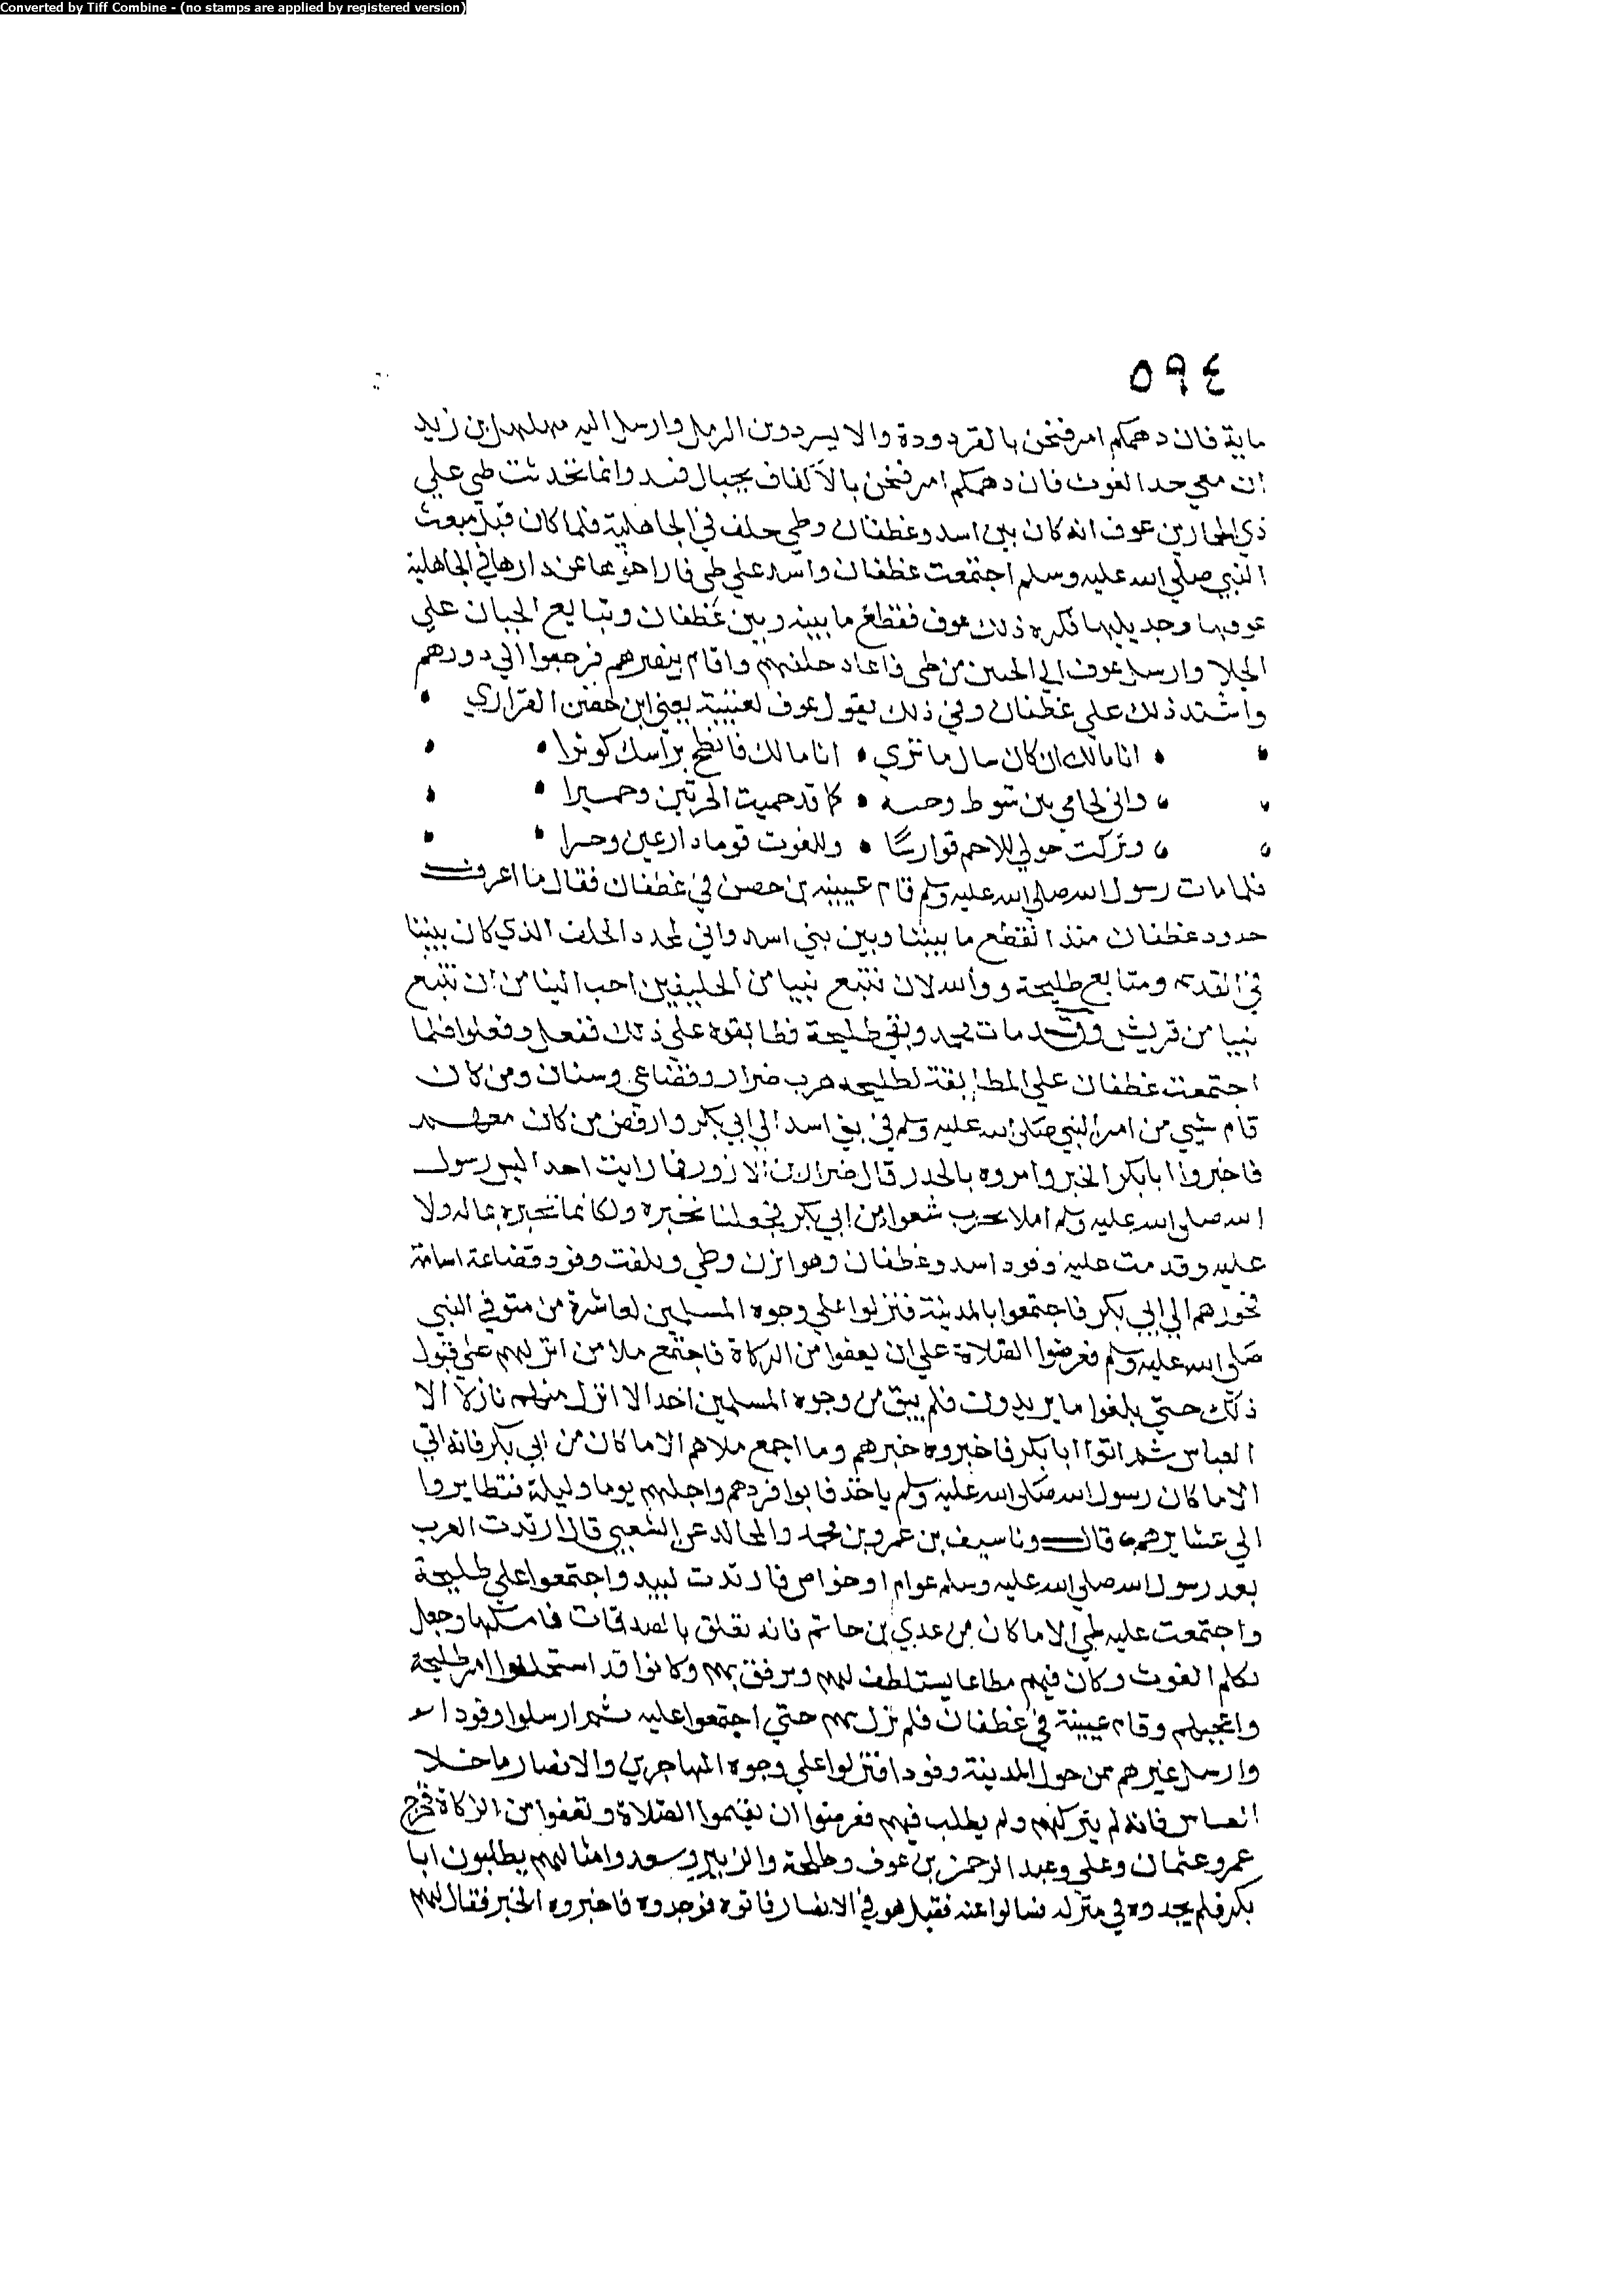 Converted by Tiff Combine - (no stamps are applied by registered version)
٥٩٤
ماية فان دهمكم امر فنحن بالقردودة والا يسر دوين الرمل وارسل اليه مهلهل بن زيد
ان معي حد الغوث فان دهمكم امر فنحن بالاكناف بجبال فيد وانما تحدثت طي علي
ذي الخمارين عوف انه كان بين اسد وغطفان وطي حلف في الجاهلية فلما كان قبل مبعث
النبي صلي الله عليه وسلم اجتمعت غطفان واسد علي طي فازاحوها عن دارها في الجاهلية
غوثها وجديلها فكره ذلك عوف فقطع ما بينه وبين غطفان وتبايع الحيان علي
الجلا وارسل عوف الي الحيين من طي فاعاد حلفهم واقام بنصرهم فرجعوا الي دورهم
واشتد ذلك علي غطفان وفي ذلك يقول عوف لعيينة يعني ابن حصن الفزاري
انا مالك ان كان مال ما تري • انا مالك فانطح براسك كوثرا
واني لحامي بين شوط وحية • كما قد حميت الحرتين وحميرا
وتركت حولي للاحم فوارسًا • وللغوث قوما دارعين وحسرا
فلما مات رسول الله صلي الله عليه وسلم قام عيينه بن حصن في غطفان فقال ما اعرف
حدود غطفان منذ انقطع ما بيننا وبين بني اسد واني لمجدد الحلف الذي كان بيننا
في القديم ومتابع طليحة ووالله لان نتبع نبيا من الحليفين احب الينا من ان نتبع
نبيا من قريش وقد مات محمد وبقي طليحة فطابقوه علي ذلك ففعل وفعلوا فلما
اجتمعت غطفان علي المطابقة لطليحه هرب ضرار وقضاعي وسنان ومن كان
قام بشي من امر النبي صلي الله عليه وسلم في بني اسد الي ابي بكر وارفض من كان معهم
فاخبروا ابابكر الخبر وامروه بالحذر قال ضرار بن الازور فما رايت احدا ليس رسول
الله صلي الله عليه وسلم املا بحرب شعوا من ابي بكر فجعلنا نخبره ولكانما نخبره بماله ولا
عليه وقدمت عليه وفود اسد وغطفان وهوازن وطي وتلقت وفود قضاعة اسامة
فحوزهم الي ابي بكر فاجتمعوا بالمدينة فنزلوا علي وجوه المسلمين لعاشرة من متوفي النبي
صلي الله عليه وسلم فعرضوا الصلاة علي ان يعفوا من الزكاة فاجتمع ملا من انزلهم علي قبول
ذلك حتي بلغوا ما يريدون فلم يبق من وجوه المسلمين احد الا انزل منهم نازلا الا
العباس ثم اتوا ابابكر فاخبروه خبرهم وما اجمع ملاهم الا ما كان من ابي بكر فانه ابي
الا ما كان رسول الله صلي الله عليه وسلم ياخذ فابوا فردهم واجلهم يوما وليلة فتطايروا
الي عشايرهم قال ونا سيف بن عمرو بن محمد والمجالد عن الشعبي قال ارتدت العرب
بعد رسول الله صلي الله عليه وسلم عوام او خواص فارتدت لبيد واجتمعوا علي طليحة
واجتمعت عليه طي الا ما كان من عدي بن حاتم فانه تعلق بالصدقات فامسكها وجعل
يكلم الغوث وكان فيهم مطاعا يستلطف لهم ويرفق بهم وكانوا قد استحلوا امر طليحة
واعجبهم وقام عيينة في غطفان فلم يزل بهم حتي اجتمعوا عليه ثم ارسلوا وفودا
وارسل غيرهم ممن حول المدينة وفودا فنزلوا علي وجوه المهاجرين والانصار ما خلا
العباس فانه لم يتركهم ولم يطلب فيهم فعرضوا ان يقيموا الصلاة ويعفوا من الزكاة فخرج
عمر وعثمان وعلي وعبد الرحمن بن عوف وطلحة والزبير وسعد وامثالهم يطلبون ابا
بكر فلم يجدوه في منزله فسالوا عنه فقيل هو في الانصار فاتوه فوجدوه فاخبروه الخبر فقال لهم